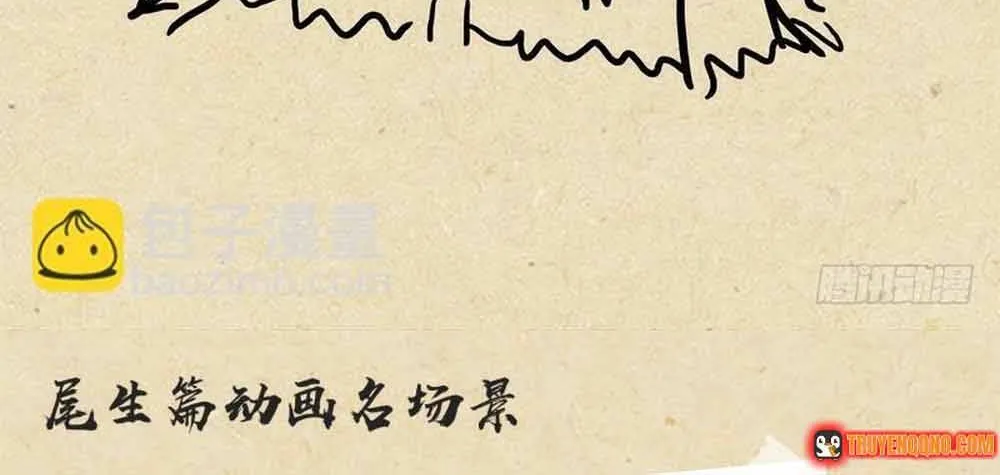 包子漫畫
baozimh.com
腾讯动漫
尾生篇动画名场景
TRUYENQQNO.COM